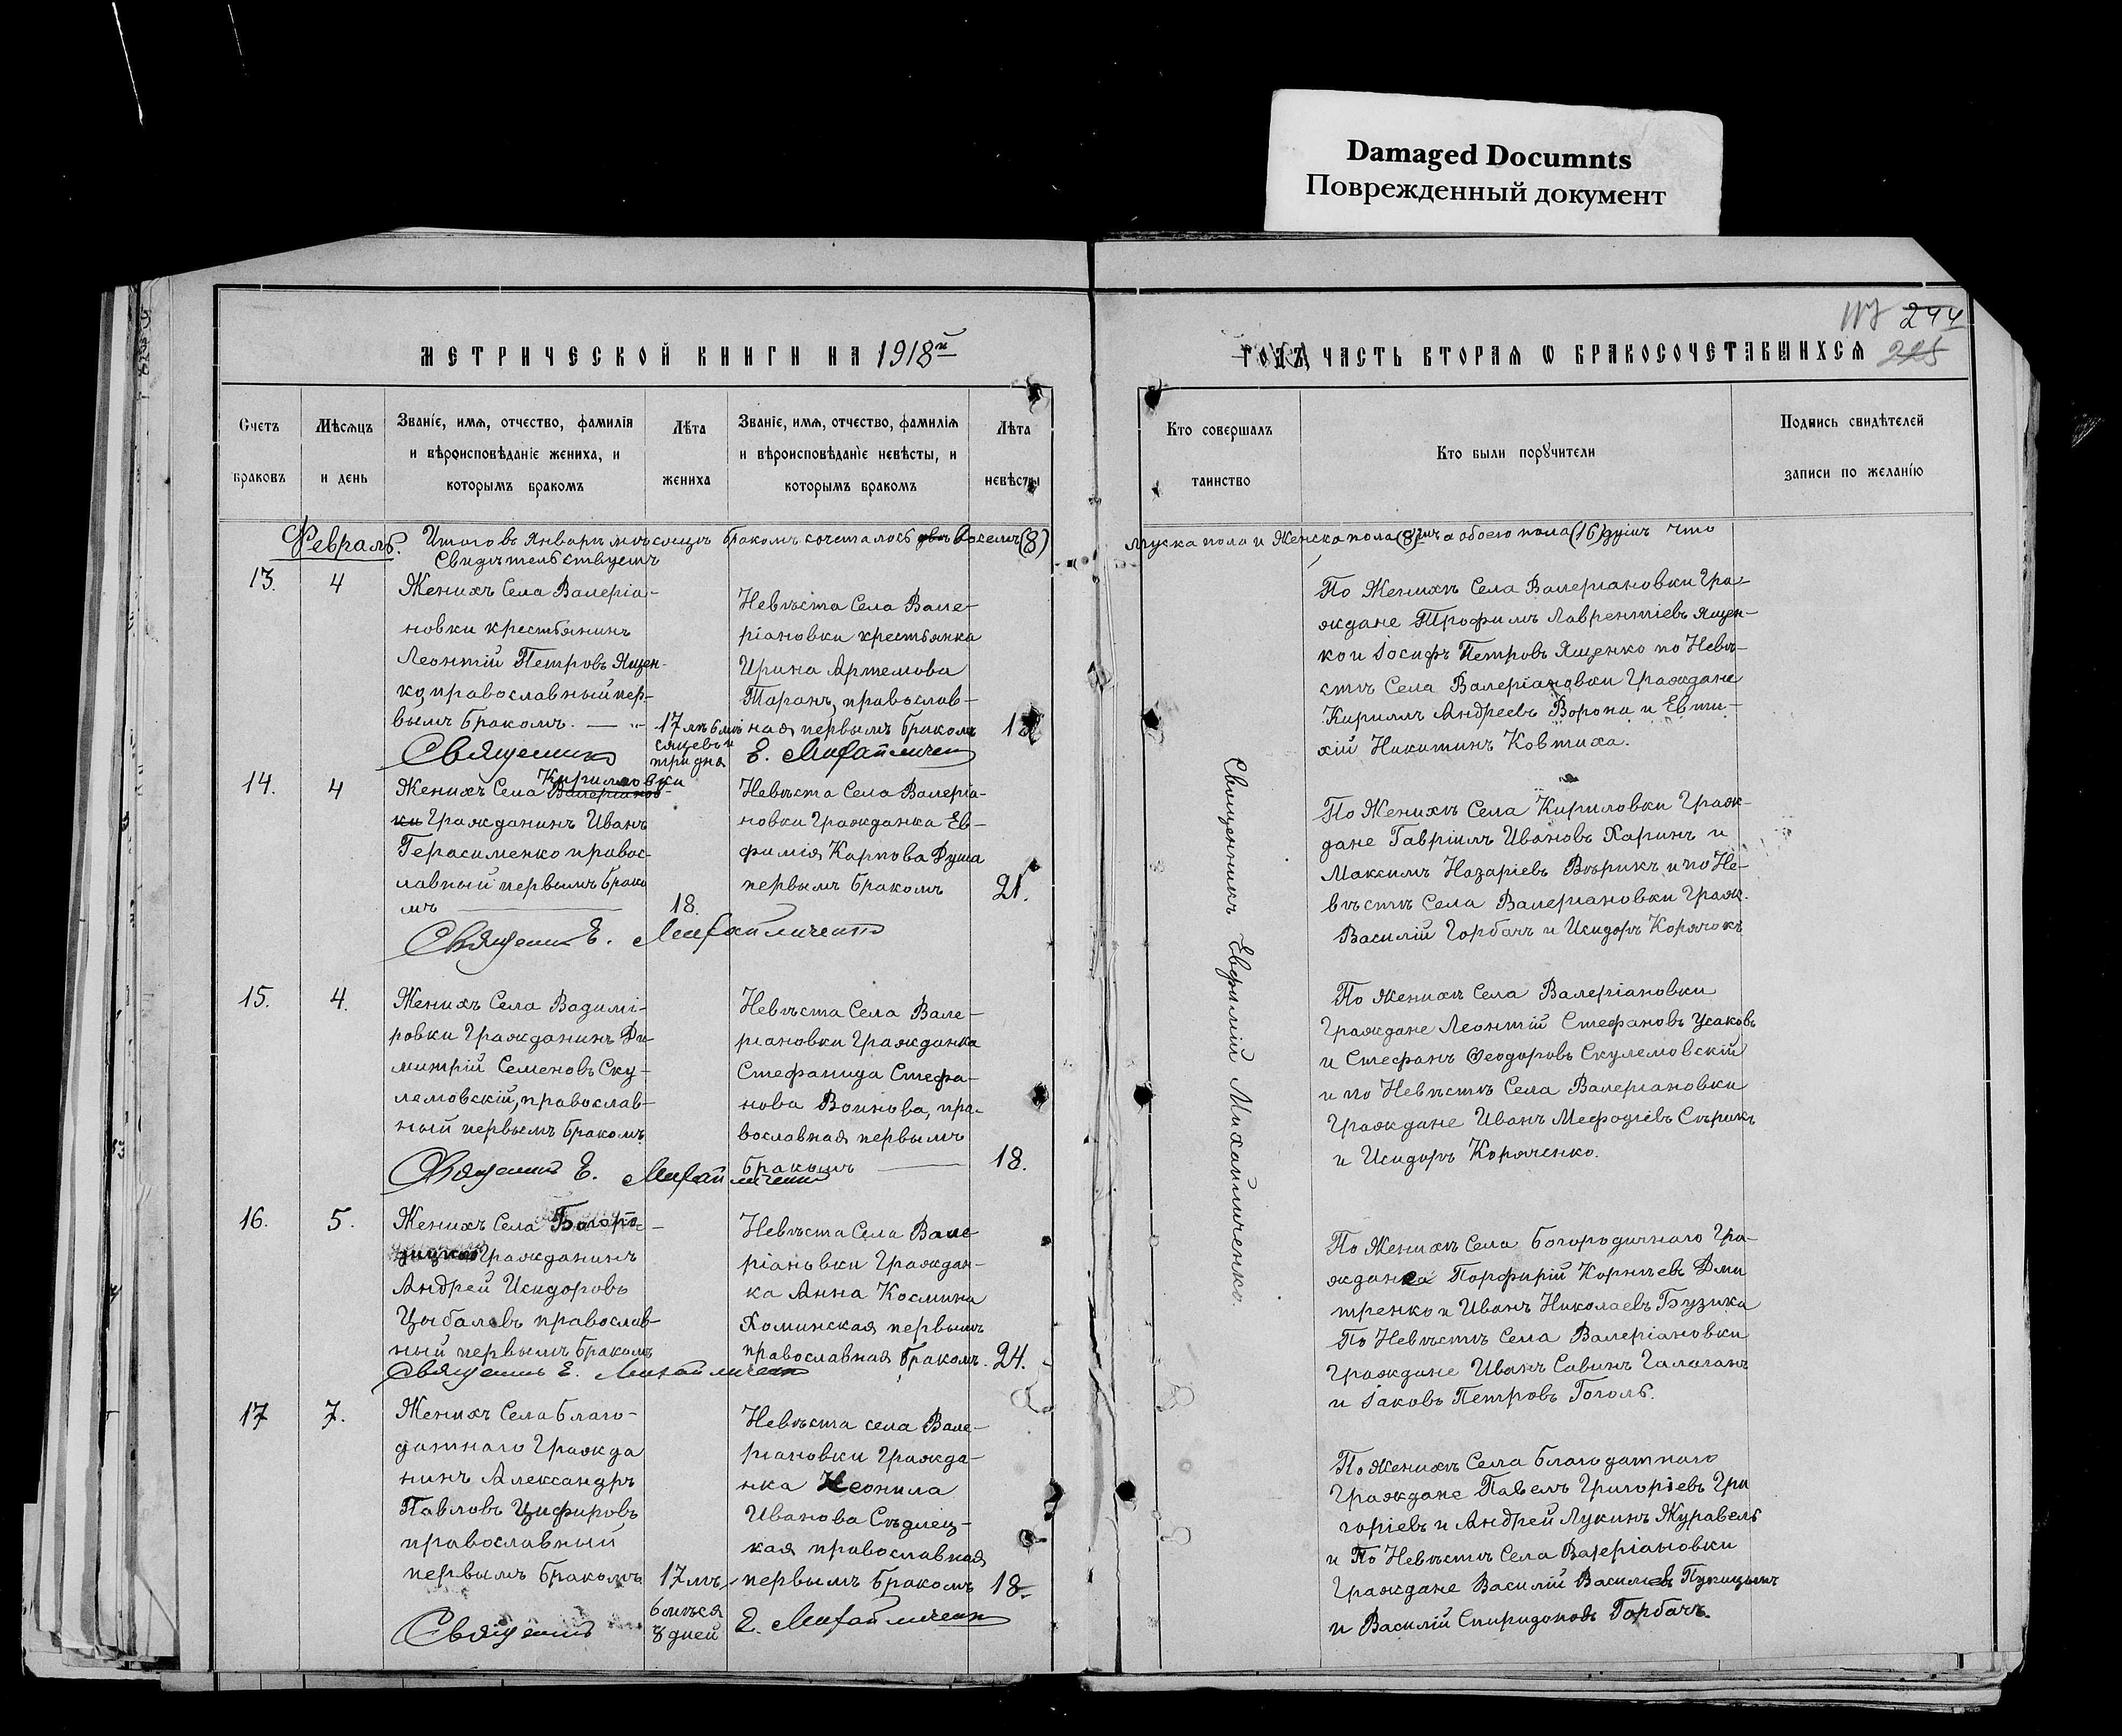 Damaged Documnts
Поврежденный документ
244
МЕТРИЧЕСКОЙ КНИГИ НА 1918й
ГОДЪ, ЧАСТЬ ВТОРАЯ Ѡ БРАКОСОЧЕТАВШИХСЯ 225
Счетъ браковъ
Мѣсяцъ и день
Званіе, имя, отчество, фамилія
и вѣроисповѣданіе жениха, и
которымъ бракомъ
Лѣта жениха
Званіе, имя, отчество, фамилія
и вѣроисповѣданіе невѣсты, и
которымъ бракомъ
Лѣта невѣсты
Кто совершалъ
таинство
Кто были порꙋчители
Подпись свидѣтелей
записи по желанію
Февраль. Итого въ Январѣ мѣсяцѣ бракомъ сочеталось восемь (8)
мужска пола и Женска пола (8) а обоего пола (16) душъ что
Свидѣтельствуетъ
13. 4
Женихъ Села Валерiа-
новки крестьянинъ
Леонтiй Петровъ Ящен-
ко, православный пер-
вымъ бракомъ.
17 лѣтъ 6 мѣ
сяцевъ и
три дня
Невѣста Села Вале-
рiановки крестьянка
Ирина Артемова
Таранъ, православ-
ная первымъ бракомъ
Священникъ Е. Михайличенко
По Женихѣ Села Валерiановки Гра-
ждане Трофимъ Лаврентiевъ Ящен-
ко и Iосифъ Петровъ Ященко по Невѣ-
стѣ Села Валерiановки Граждане
Кириллъ Андреевъ Ворона и Евти-
хiй Никитинъ Ковтиха.
14. 4
Кириловки
Женихъ Села Валерiанов-
ки Гражданинъ Иванъ
Герасименко правос-
лавный первымъ брако
мъ
18.
Невѣста Села Валерiа-
новки Гражданка Ев-
фимiя Карпова Душа
первымъ бракомъ
21.
Священникъ Е. Михайличенко
По Женихѣ Села Кириловки Граж-
дане Гаврiилъ Ивановъ Харинъ и
Максимъ Назарiевъ и по Не-
вѣстѣ Села Валерiановки Граж.
Василiй Горбачъ и Исидоръ Корячокъ
15. 4.
Женихъ Села Вадимi-
ровки Гражданинъ Ди-
митрiй Семеновъ Ску-
лемовскiй, православ-
ный первымъ бракомъ
Невѣста Села Вале-
рiановки Гражданка
Стефанида Стефа-
нова Воинова, пра-
вославная первымъ
бракомъ
18.
Священникъ Е. Михайличенко
По Женихѣ Села Валерiановки
Граждане Леонтiй Стефановъ Усаковъ
и Стефанъ Ѳеодоровъ Скулемовскiй
и по Невѣстѣ Села Валерiановки
Граждане Иванъ Мефодiевъ Сѣрикъ
и Исидоръ Коряченко.
Священникъ Евфимiй Михайличенко.
16. 5.
Женихъ Села Богоро-
дицкаго Гражданинъ
Андрей Исидоровъ
Цыбалевъ православ-
ный первымъ бракомъ
Невѣста Села Вале
рiановки Граждан-
ка Анна Космина
Хоминская первымъ
православная бракомъ.
24.
Священникъ Е. Михайличенко
По Женихѣ Села Богородичнаго Гра-
ждане Порфирiй Корнѣевъ Дми
тренко и Иванъ Николаевъ Бузика
По Невѣстѣ Села Валерiановки
Граждане Иванъ Савинъ Галаганъ
и Iаковъ Петровъ Гоголь.
17 7.
Женихъ Села Благо-
датнаго Гражда
нинъ Александръ
Павловъ Цифировъ
православный
первымъ бракомъ
17 лѣтъ
6 мѣся
8 дней
Невѣста села Вале-
рiановки Гражда-
нка Неонила
Иванова Сѣдлец-
кая православная
первымъ бракомъ
18
Священникъ Е. Михайличенко
По Женихѣ Села Благодатнаго
Граждане Павелъ Григорiевъ Гри
горiевъ и Андрей Лукинъ Журавель
и По Невѣстѣ Села Валерiановки
Граждане Василiй Василiевъ
и Василiй Спиридоновъ Горбачъ.